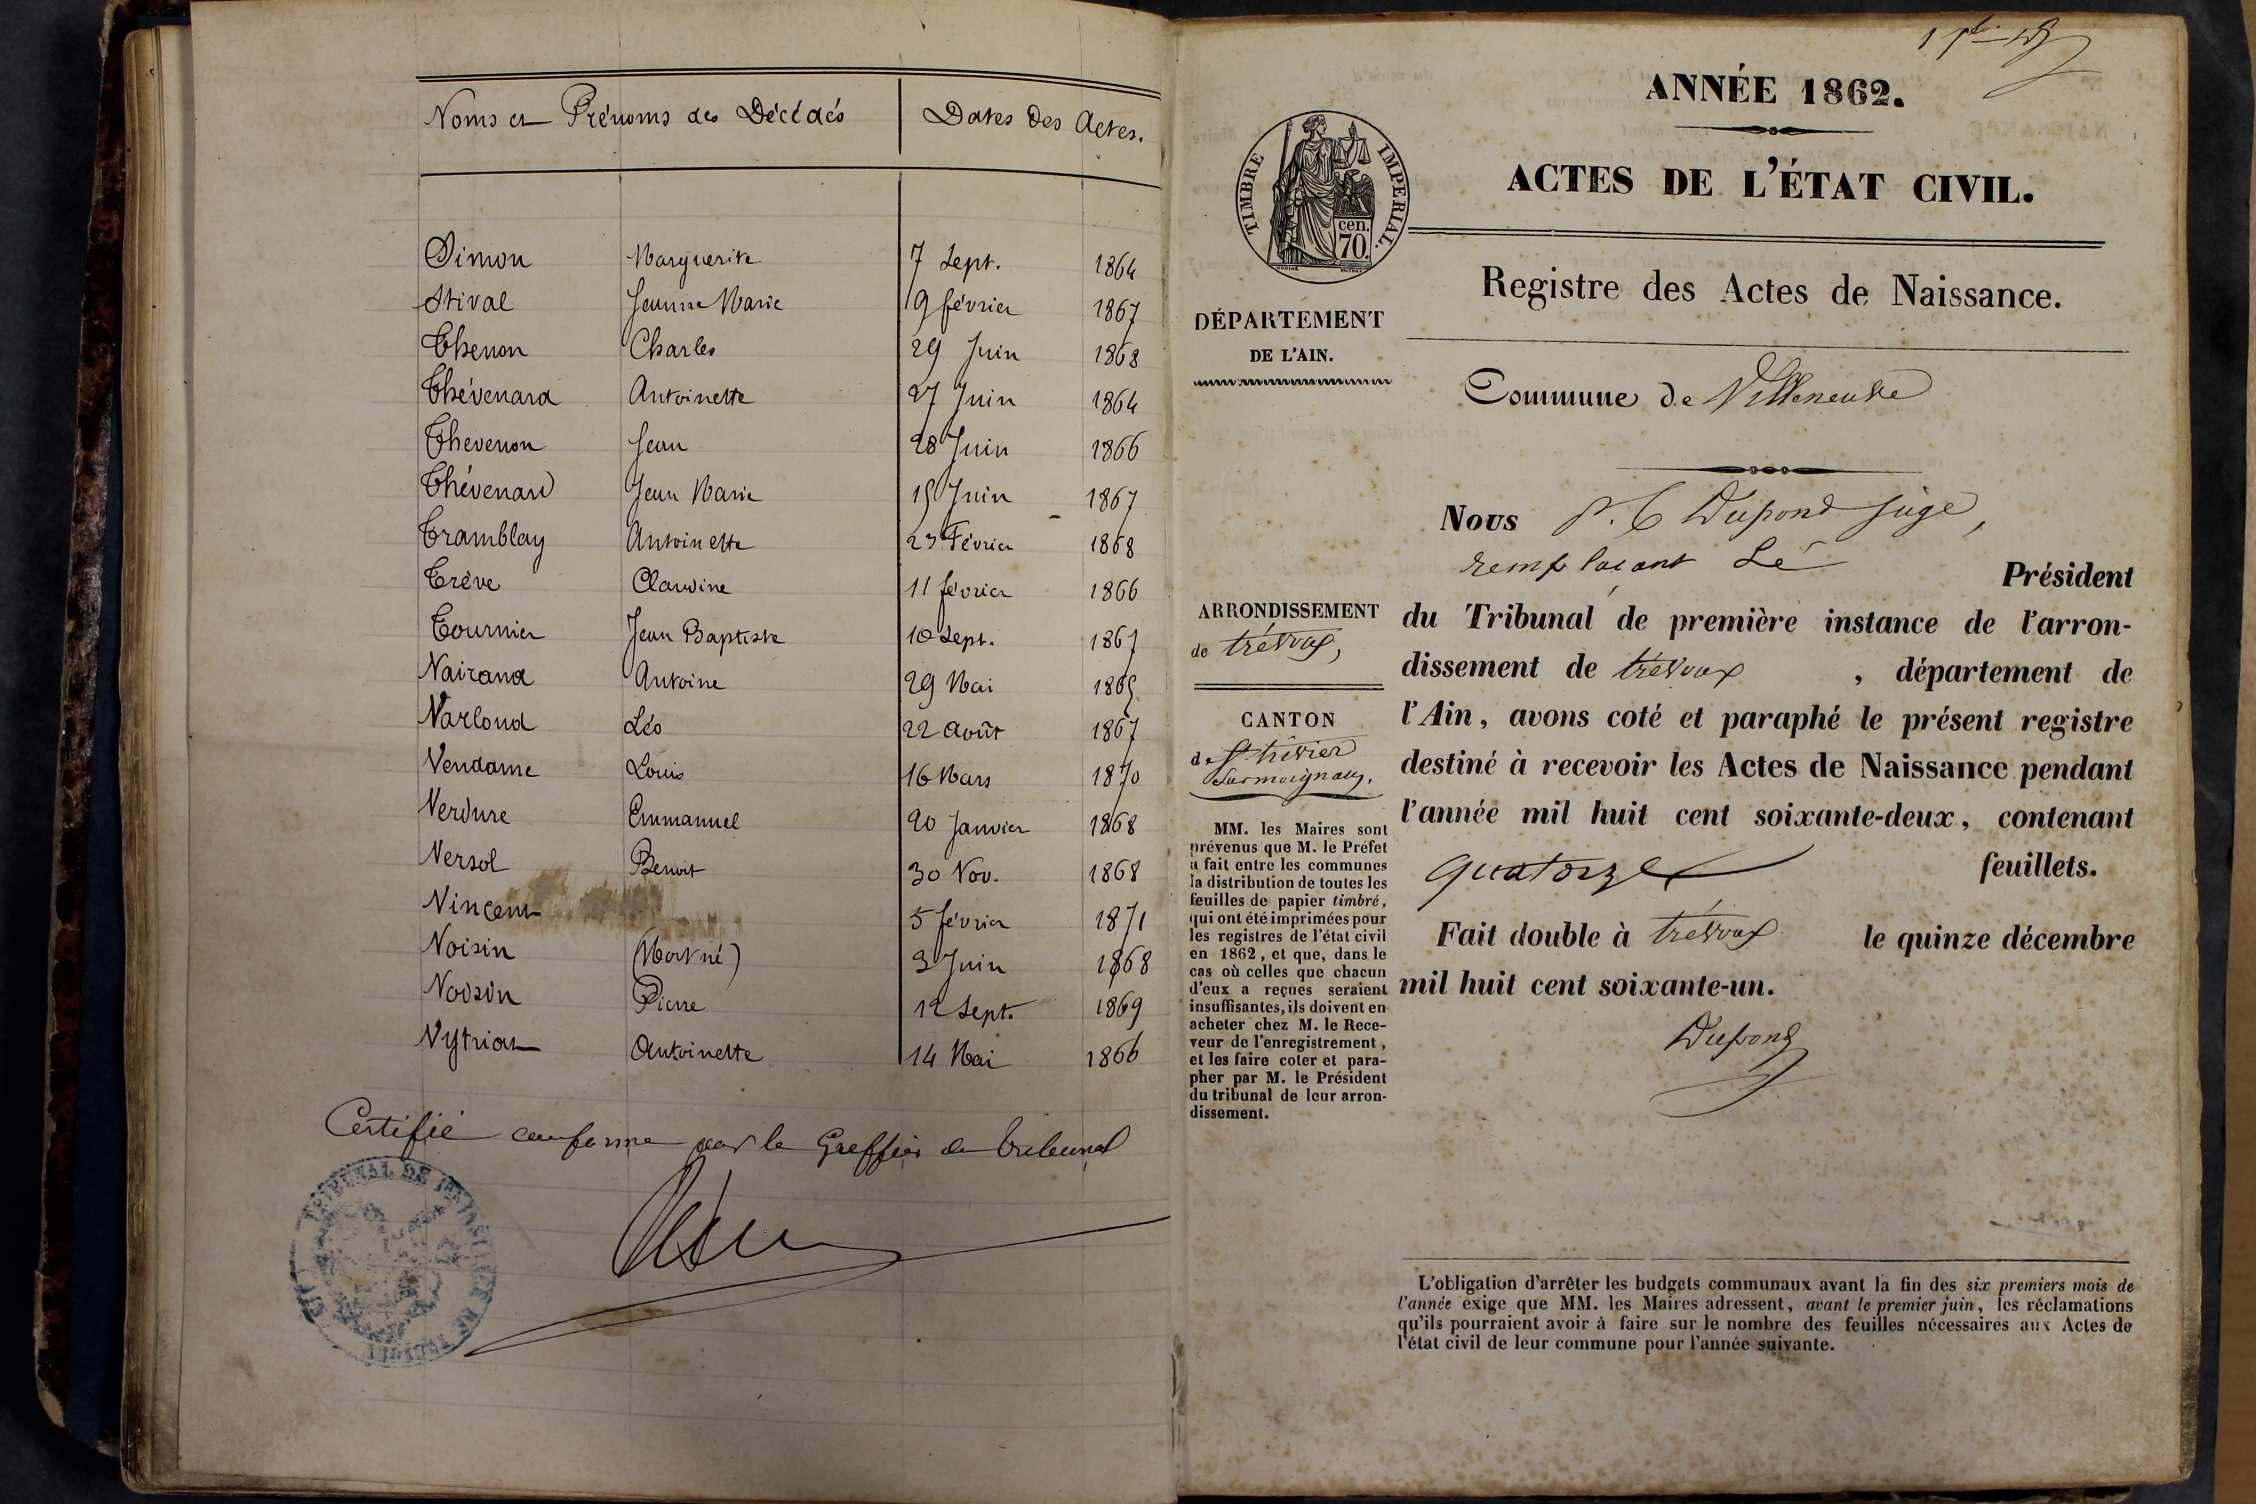 Noms et Prénoms des Décédés Dates des Actes.
Simon Marguerite 7 Sept. 1864
Stival Jeanne Marie 19 février 1867
Thenon Charles 29 Juin 1868
Thévenard Antoinette 27 Juin 1864
Thevenon Jean 28 Juin 1866
Thévenard Jean Marie 15 Juin 1867
Tramblay Antoinette 23 Février 1868
Trève Claudine 11 février 1866
Tournier Jean Baptiste 10 Sept. 1867
Vairand Antoine 29 Mai 1865
Varloud Léo 22 Août 1867
Vendame Louis 16 Mars 1870
Verdure Emmanuel 20 Janvier 1868
Versol Benoit 30 Nov. 1868
Vincent 5 février 1871
Voisin (Mort né) 3 Juin 1868
Voisin Pierre 12 Sept. 1869
Vytriat Antoinette 14 Mai 1866
Certifié conforme par le Greffier du tribunal
TRIBUNAL DE
ANNÉE 1862.
ACTES DE L'ÉTAT CIVIL.
TIMBRE IMPERIAL.
cen.
70.
Registre des Actes de Naissance.
DÉPARTEMENT
DE L'AIN.
Commune de Villeneuve
Nous P. C Dupond juge,
remplaçant Le Président
du Tribunal de première instance de l'arron-
dissement de trévoux, département de
l'Ain, avons coté et paraphé le présent registre
destiné à recevoir les Actes de Naissance pendant
l'année mil huit cent soixante-deux, contenant
quatorze feuillets.
Fait double à trévoux le quinze décembre
mil huit cent soixante-un.
Dupond
ARRONDISSEMENT
de trévoux,
CANTON
de St trivier
Surmoignans.
MM. les Maires sont
prévenus que M. le Préfet
a fait entre les communes
la distribution de toutes les
feuilles de papier timbré,
qui ont été imprimées pour
les registres de l'état civil
en 1862, et que, dans le
cas où celles que chacun
d'eux a reçues seraient
insuffisantes, ils doivent en
acheter chez M. le Rece-
veur de l'enregistrement,
et les faire coter et para-
pher par M. le Président
du tribunal de leur arron-
dissement.
L'obligation d'arrêter les budgets communaux avant la fin des six premiers mois de
l'année exige que MM. les Maires adressent, avant le premier juin, les réclamations
qu'ils pourraient avoir à faire sur le nombre des feuilles nécessaires aux Actes de
l'état civil de leur commune pour l'année suivante.